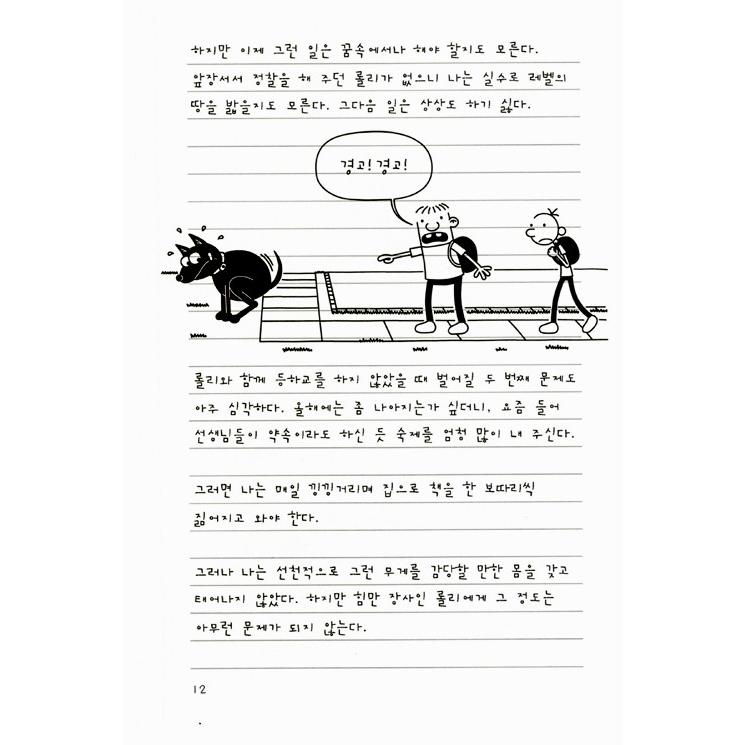 하지만 이제 그런 일은 꿈속에서나 해야 할지도 모른다.
앞장서서 정찰을 해 주던 롤리가 없으니 나는 실수로 레벨의
땅을 밟을지도 모른다. 그다음 일은 상상도 하기 싫다.
경고! 경고!
롤리와 함께 등하교를 하지 않았을 때 벌어질 두 번째 문제도
아주 심각하다. 올해에는 좀 나아지는가 싶더니, 요즘 들어
선생님들이 약속이라도 하신 듯 숙제를 엄청 많이 내 주신다.
그러면 나는 매일 낑낑거리며 집으로 책을 한 보따리씩
짊어지고 와야 한다.
그러나 나는 선천적으로 그런 무게를 감당할 만한 몸을 갖고
태어나지 않았다. 하지만 힘만 장사인 롤리에게 그 정도는
아무런 문제가 되지 않는다.
12